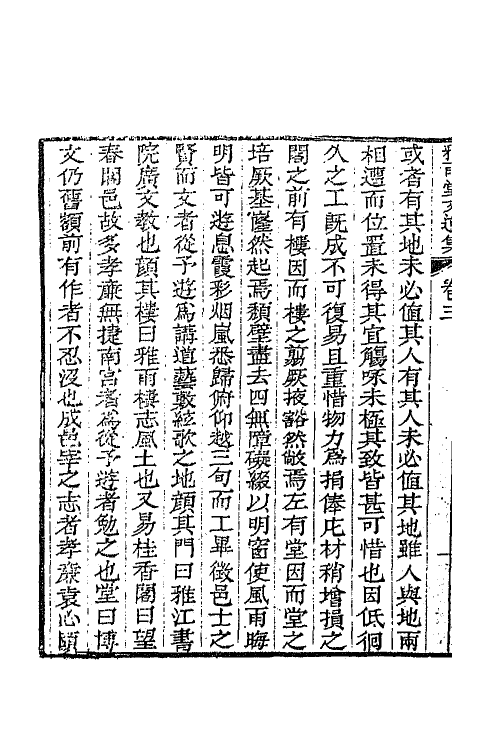 雅雨堂文遺集 卷三
或者有其地未必值其人有其人未必值其地雖人與地兩
相遭而位置未得其宜觴咏未極其致皆甚可惜也因低徊
久之工既成不可復易且重惜物力爲捐俸庀材稍增損之
閣之前有樓因而樓之剪厥掖豁然敞焉左有堂因而堂之
培厥基窿然起焉頽壁盡去四無障礙綴以明窗使風雨晦
明皆可遊息霞彩烟嵐悉歸俯仰越三旬而工畢徵邑士之
賢而文者從予遊爲講道藝敷絃歌之地顔其門曰雅江書
院廣文教也顔其樓曰雅雨樓志風土也又易桂香閣曰望
春閣邑故多孝亷無捷南宫者爲從予遊者勉之也堂曰博
文仍舊額前有作者不忍沒也成邑宰之志者孝亷袁心